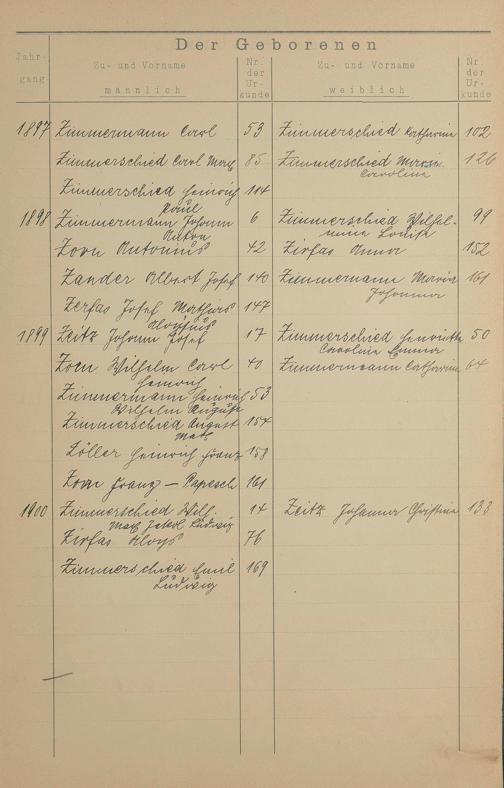 Der Geborenen
Jahr-
gang
Zu- und Vorname
männlich
Nr.
der
Ur-
kunde
Zu- und Vorname
weiblich
Nr.
der
Ur-
kunde
1897 Zimmermann Carl 53 Zimmerschied Catharine 102
Zimmerschied Carl Max 85 Zimmerschied Maria 126
Carolina
Zimmerschied Heinrich 114
Paul
1898 Zimmermann Johann 6 Zimmerschied Wilhel- 99
Anton mine Louise
Zorn Antonius 42 Zirfas Anna 152
Zander Albert Josef 140 Zimmermann Maria 161
Johanna
Zerfas Josef Mathias 147
Aloysius
1899 Zeitz Johann Josef 17 Zimmerschied Henriette 50
Caroline Emma
Zorn Wilhelm Carl 40 Zimmermann Catharina 64
Heinrich
Zimmermann Heinrich 53
Wilhelm August
Zimmerschied August 154
Zöller Heinrich Franz 159
Zorn Franz — 161
1900 Zimmerschied Wilh. 14 Zeitz Johanna Christina 133
Max Jakob Ludwig
Zirfas Aloys 76
Zimmerschied Emil 169
Ludwig